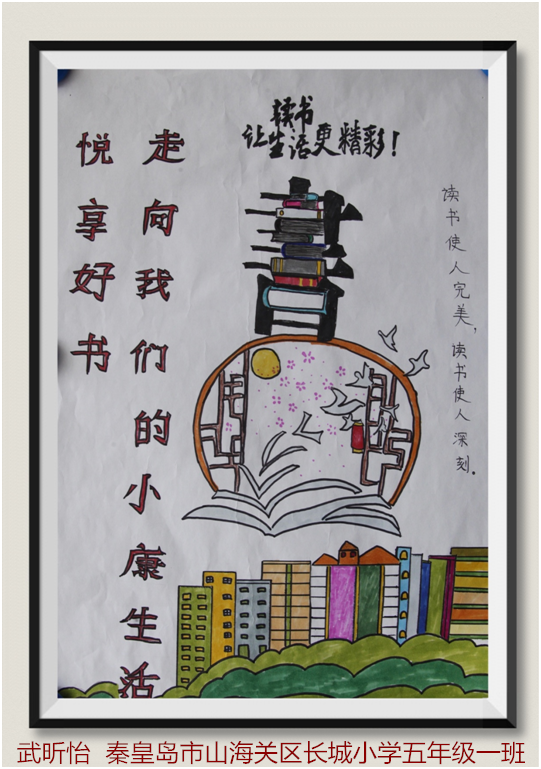 读书
让生活更精彩!
悦享好书
走向我们的小康生活
書
读书使人完美,读书使人深刻。
武昕怡 秦皇岛市山海关区长城小学五年级一班